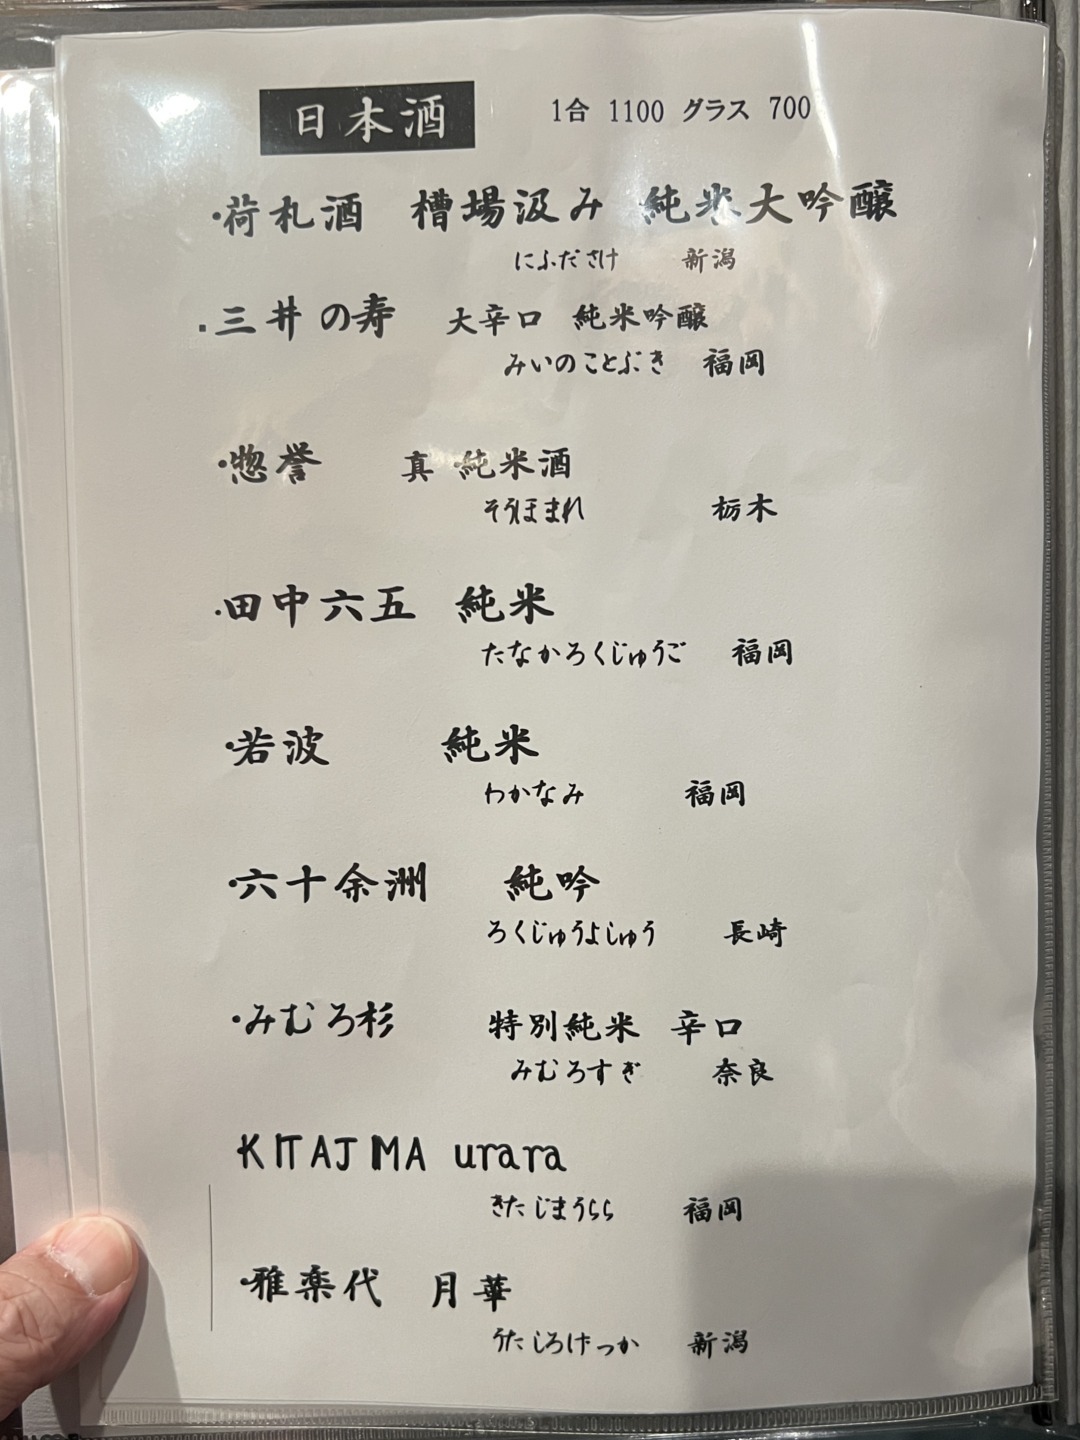 日本酒 1合 1100 グラス 700
・荷札酒 槽場汲み 純米大吟醸
にふださけ 新潟
・三井の寿 大辛口 純米吟醸
みいのことぶき 福岡
・惣誉 真 純米酒
そうほまれ 栃木
・田中六五 純米
たなかろくじゅうご 福岡
・若波 純米
わかなみ 福岡
・六十余洲 純吟
ろくじゅうよしゅう 長崎
・みむろ杉 特別純米 辛口
みむろすぎ 奈良
KITAJIMA urara
きたじまうらら 福岡
・雅楽代 月華
うたしろげっか 新潟